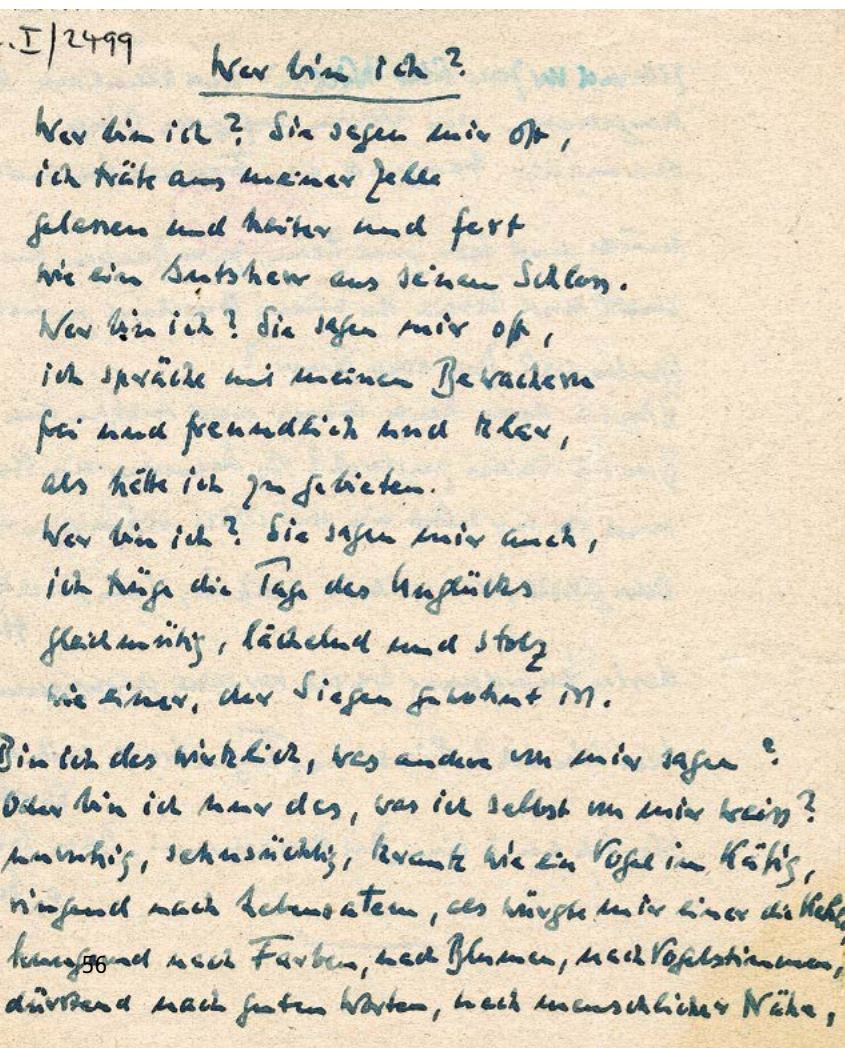 . I/2499
Wer bin ich?
Wer bin ich? Sie sagen mir oft,
ich träte aus meiner Zelle
gelassen und heiter und fest
wie ein Gutsherr aus seinem Schloss.
Wer bin ich? Sie sagen mir oft,
ich spräche mit meinen Bewachern
frei und freundlich und klar,
als hätte ich zu gebieten.
Wer bin ich? Sie sagen mir auch,
ich trüge die Tage des Unglücks
gleichmütig, lächelnd und stolz
wie einer, der Siegen gewohnt ist.
Bin ich das wirklich, was andere von mir sagen?
Oder bin ich nur das, was ich selbst von mir weiss?
unruhig, sehnsüchtig, krank wie ein Vogel im Käfig,
ringend nach Lebensatem, als würgte mir einer die Kehle,
hungernd nach Farben, nach Blumen, nach Vogelstimmen,
56
dürstend nach guten Worten, nach menschlicher Nähe,